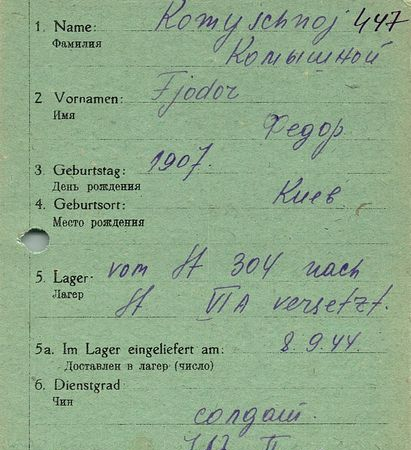 1. Name: Komyschnoj 447
Фамилия Комышной
2 Vornamen: Fjodor
Имя Федор
3. Geburtstag: 1907.
День рождения
4. Geburtsort: Киев
Место рождения
5. Lager: vom St 304 nach
Лагер St VI A versetzt.
5a. Im Lager eingeliefert am: 8.9.44.
Доставлен в лагер (число)
6. Dienstgrad
Чин солдат.